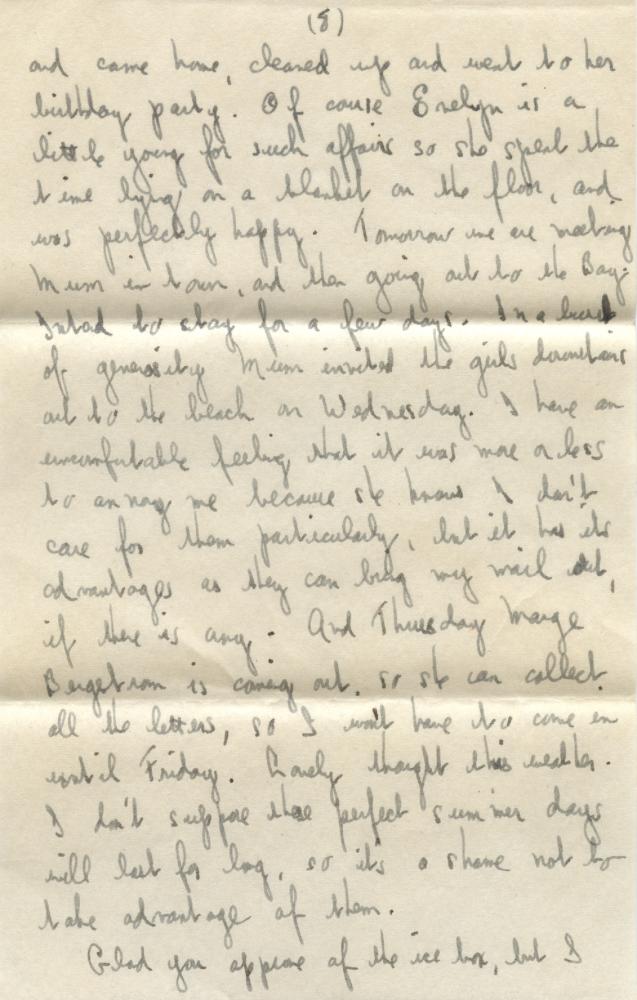 (8)
and came home, cleaned up and went to her
birthday party. Of couse Evelyn is a
little young for such affairs so she spent the
time lying on a blanket on the floor, and
was perfectly happy. Tomorrow we are meeting
Mum in town, and then going out to the Bay.
Intend to stay for a few days. In a burst
of generosity Mum invited the girls downstairs
out to the beach on Wednesday. I have an
uncomfortable feeling that it was more or less
to annoy me because she knows I don't
care for them particularly, but it has its
advantages as they can bring my mail out,
if there is any. And Thursday Marge
Bergstrom is coming out, so she can collect
all the letters, so I won't have to come in
until Friday. Lovely thought this weather.
I don't suppose these perfect summer days
will last for long, so it's a shame not to
take advantage of them.
Glad you approve of the ice box, but I